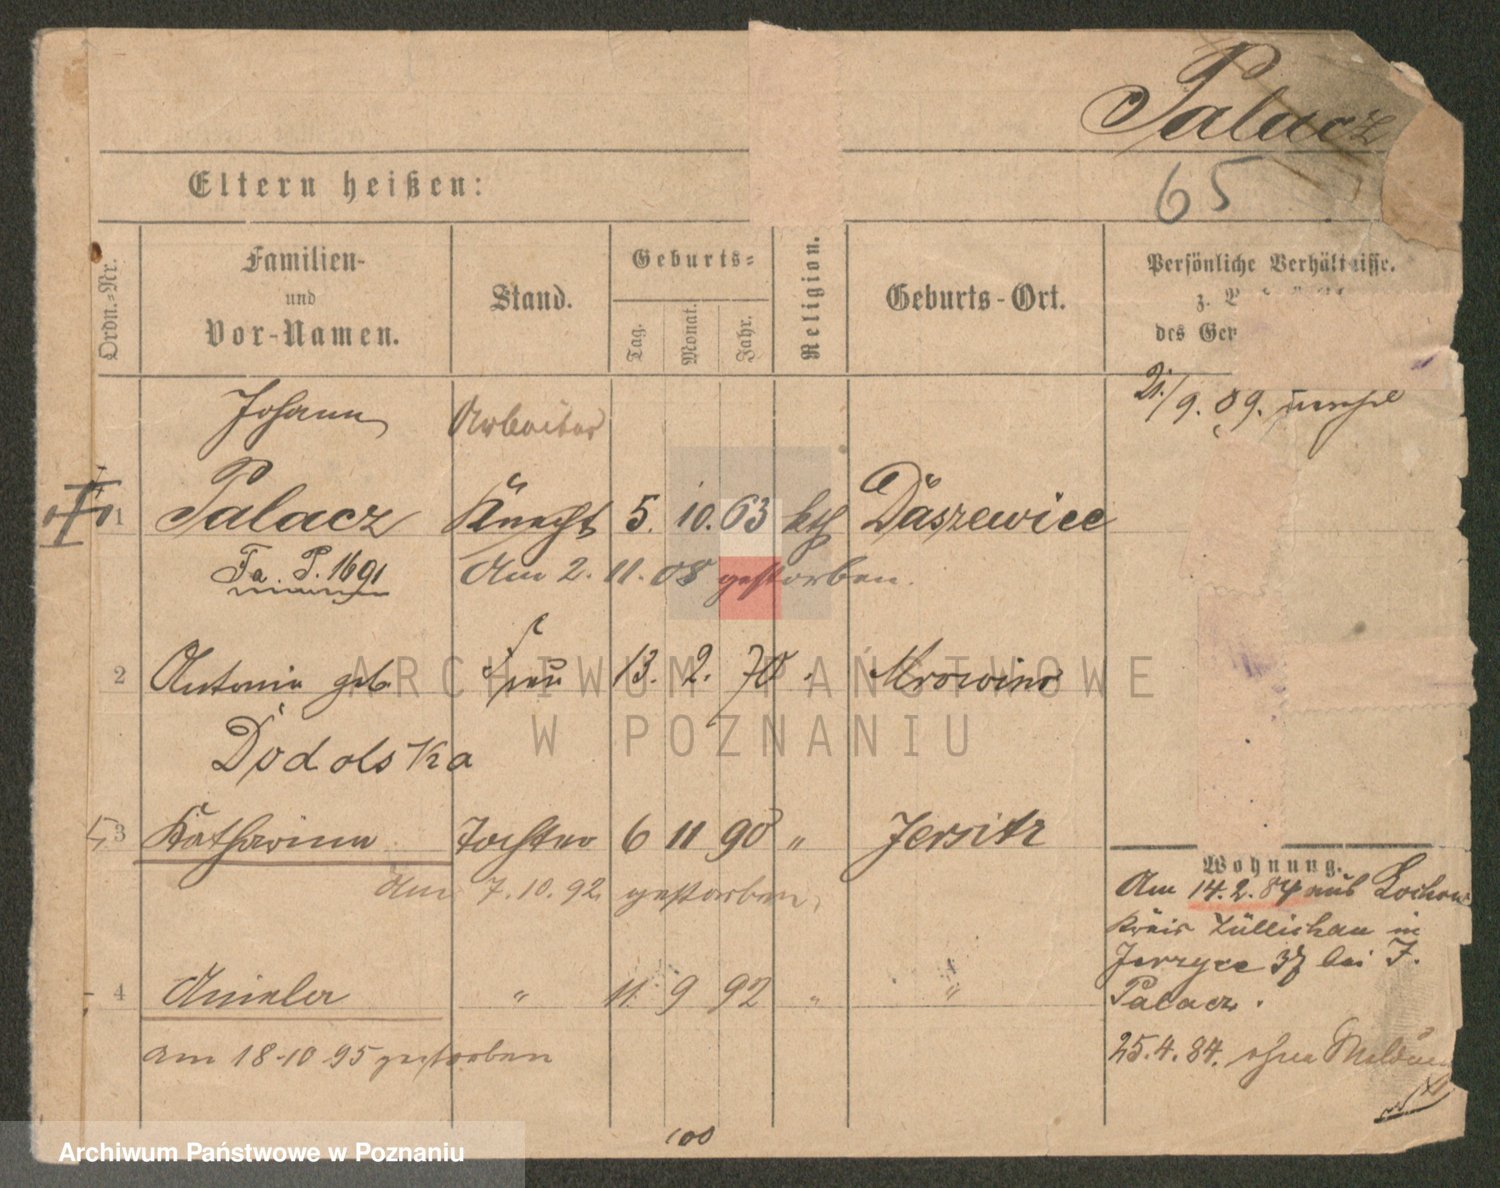 Palacz
65
Eltern heißen:
Ordn.-Nr.
Familien-
und
Vor-Namen.
Stand.
Geburts-
Tag.
Monat.
Jahr.
Religion.
Geburts-Ort.
Persönliche Verhältnisse.
z.
des Ger
21./9. 09.
Johann Arbeiter
1 Palacz Knecht 5. 10. 63 kth Daszewice
Fa. P. 1691 Am 2. 11. 08 gestorben.
2 Antonie geb Frau 13. 2. 70 Mrowino
Dodolska
3 Katharina Tochter 6 11 90 " Jersitz
Am 7. 10. 92 gestorben.
4 Aniela " 11 9 92 " "
am 18-10 95 gestorben
Wohnung.
Am 14. 2. 84 aus
Kreis Züllichau in
Jerzyce 37 bei J.
Palacz.
25. 4. 84. ohne
100
ARCHIWUM PAŃSTWOWE
W POZNANIU
Archiwum Państwowe w Poznaniu